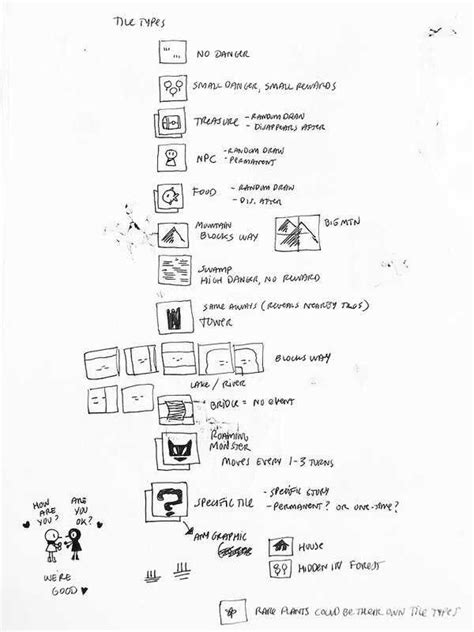 TILE TYPES
NO DANGER
SMALL DANGER, SMALL REWARDS
TREASURE - RANDOM DRAW
- DISAPPEARS AFTER
NPC - RANDOM DRAW
- PERMANENT
FOOD - RANDOM DRAW
- DIS. AFTER
MOUNTAIN
BLOCKS WAY
BIG MTN
SWAMP
HIGH DANGER, NO REWARD
SAME ALWAYS (REVEALS NEARBY TILES)
TOWER
BLOCKS WAY
LAKE / RIVER
BRIDGE = NO EVENT
ROAMING
MONSTER
MOVES EVERY 1-3 TURNS
?
SPECIFIC TILE - SPECIFIC STORY
- PERMANENT? OR ONE-TIME?
ANY GRAPHIC
HOUSE
HIDDEN IN FOREST
HOW
ARE
YOU?
ARE
YOU
OK?
WE'RE
GOOD ♥
RARE PLANTS COULD BE THEIR OWN TILE TYPES